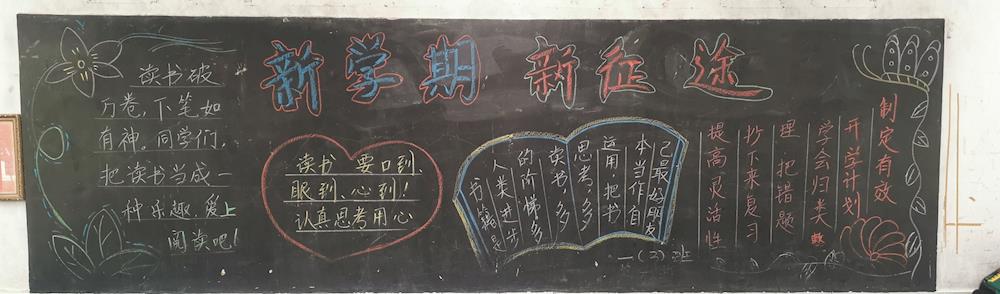 新学期 新征途
读书破
万卷,下笔如
有神。同学们,
把读书当成一
种乐趣,爱上
阅读吧!
读书 要口到、
眼到、心到!
认真思考用心
书籍是
人类进步
的阶梯多
读书,多
思考,多
运用,把书
本当作自
己最好朋友
一(2)班
制定有效
开学计划
学会归类 整
理 把错题
抄下来复习
提高灵活性